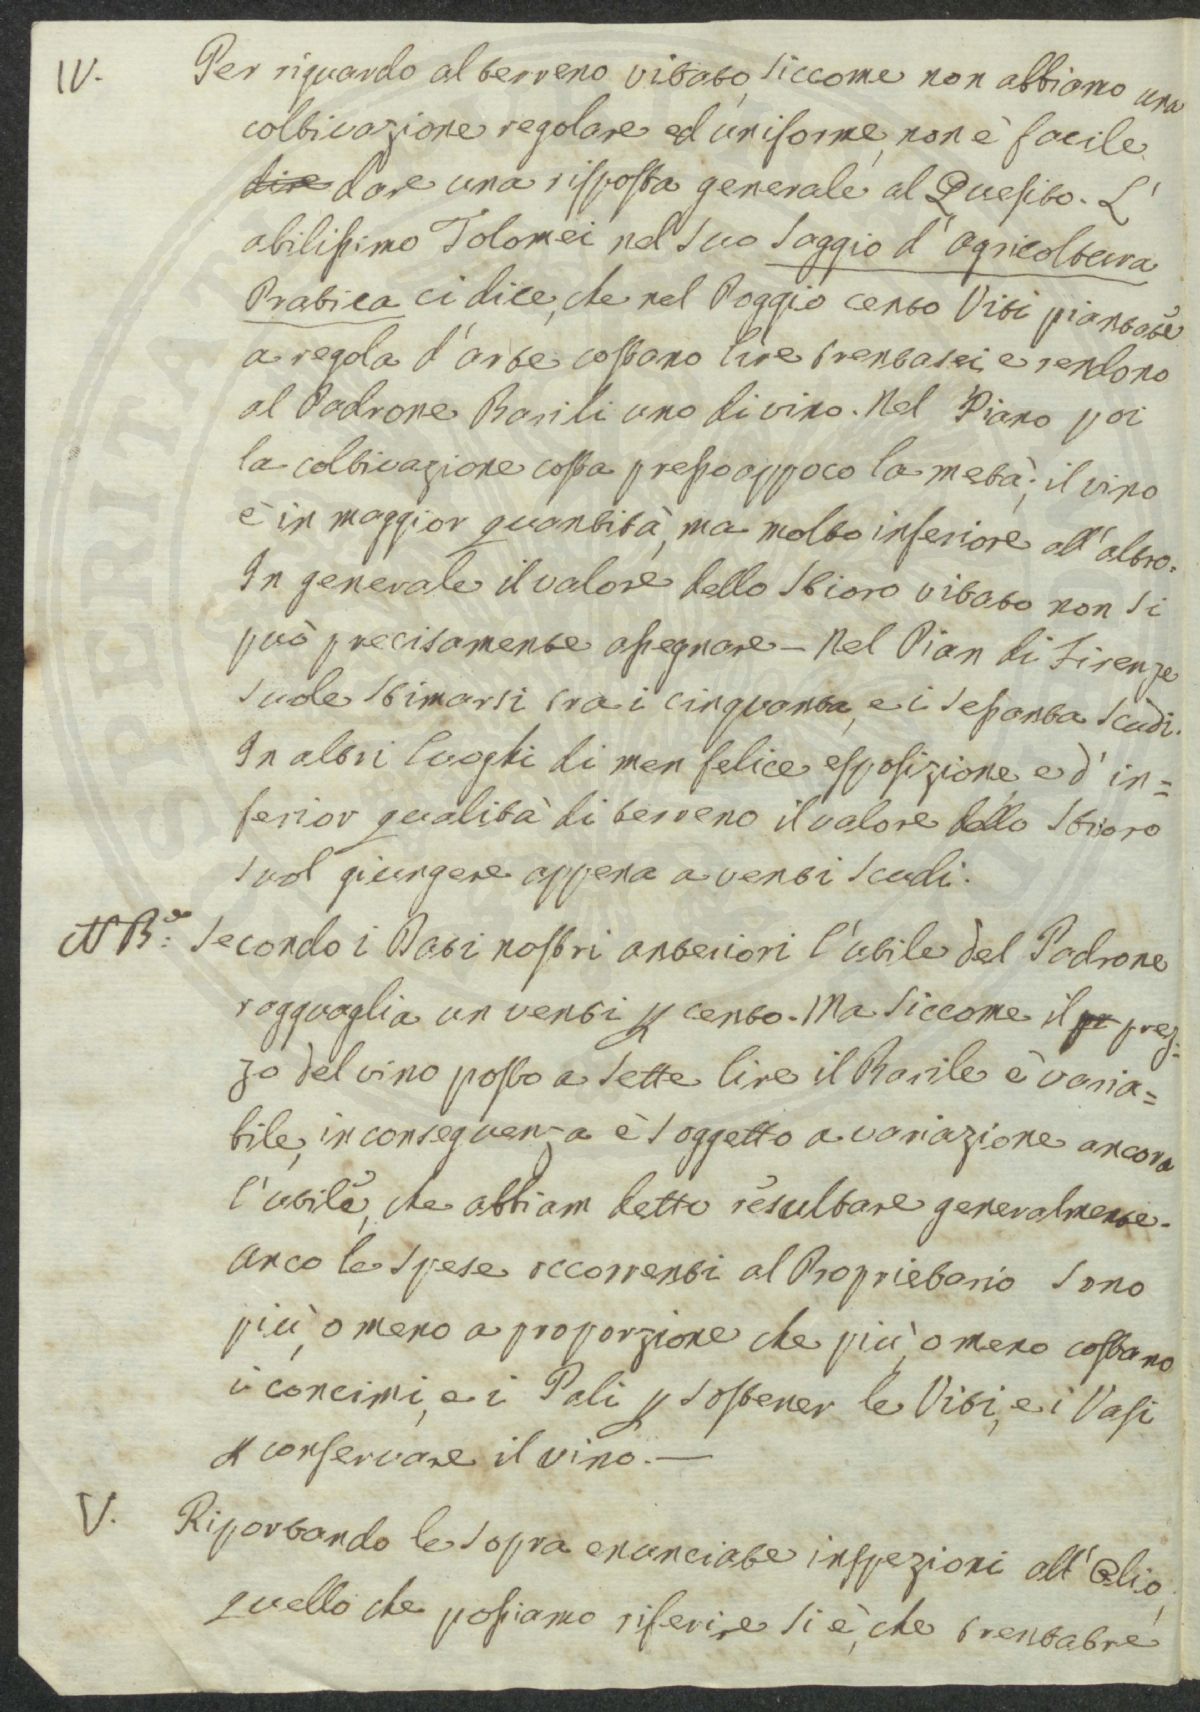 IV. Per riguardo al terreno vitato, siccome non abbiamo una
coltivazione regolare ed uniforme, non è facile
dire dare una risposta generale al Quesito. L'
abilissimo Tolomei nel suo Saggio d'Agricoltura
Pratica ci dice, che nel Poggio cento Viti piantate
a regola d'arte costano lire trentasei, e rendono
al Padrone Barili uno di vino. Nel Piano poi
la coltivazione costa presso appoco la metà; il vino
è in maggior quantità, ma molto inferiore all'altro.
In generale il valore dello Stioro vitato non si
può precisamente assegnare – Nel Pian di Firenze
suole stimarsi tra i cinquanta, e i sessanta scudi.
In altri luoghi di men felice esposizione, e d'in=
ferior qualità di terreno il valore dello Stioro
suol giungere appena a venti scudi.
NB.: Secondo i Dati nostri anteriori l'utile del Padrone
ragguaglia un venti p cento. Ma siccome il pr prez=
zo del vino posto a sette lire il Barile è varia=
bile, in conseguenza è soggetto a variazione ancora
l'utile, che abbiam detto resultare generalmente.
Anco le spese occorrenti al Proprietario sono
più, o meno a proporzione che più, o meno costano
i concimi, e i Pali p sostener le Viti, e i Vasi
p conservare il vino. —
V. Riportando le sopra enunciate inspezioni all'Olio,
quello che possiamo riferire si è, che trentatre